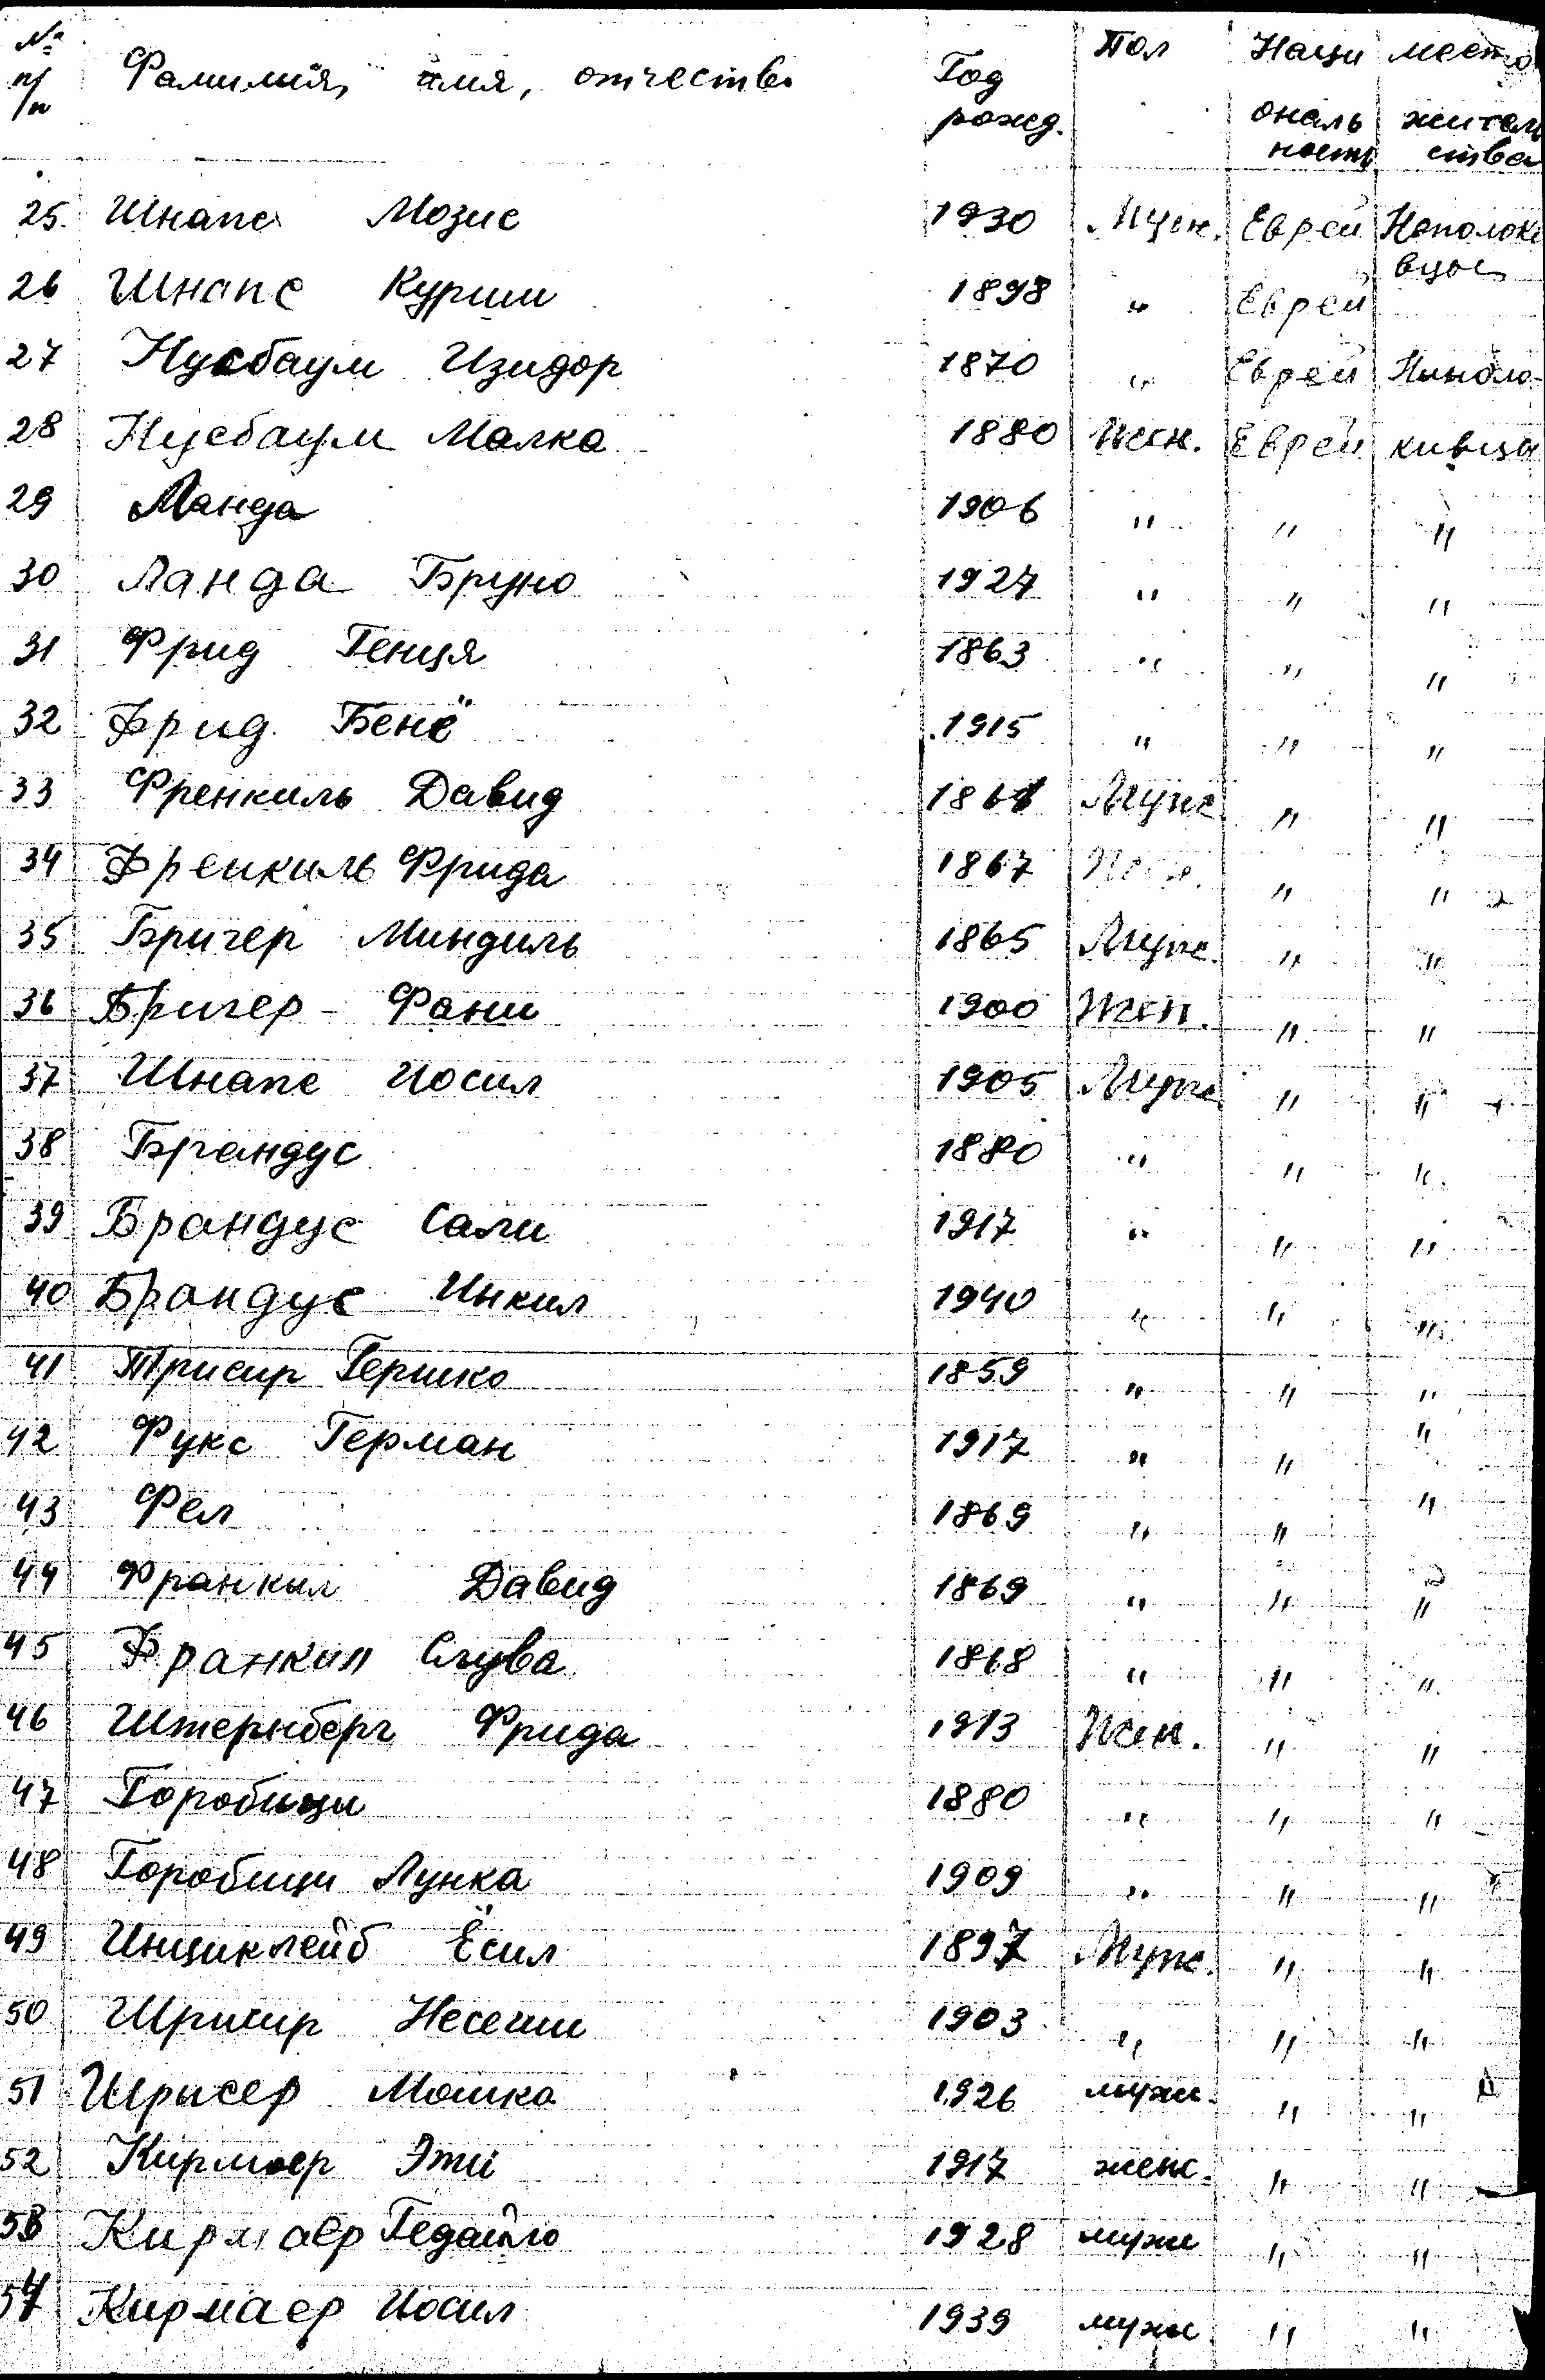 № п/п Фамилия, имя, отчество Год рожд. Пол Национальность место жительства
25. Шнапс Мозис 1930 Муж. Еврей Неполоки
вцы
26 Шнапс Курши 1898 " Еврей
27 Нусбаум Изидор 1870 " Еврей Ниполо-
28 Нусбаум Малка 1880 Жен. Еврей кивцы
29 Ланда 1906 " " "
30 Ланда Бруно 1927 " " "
31 Фрид Генця 1863 " " "
32 Фрид. Бенё 1915 " " "
33 Френкиль Давид 1861 Муж. " "
34 Френкиль Фрида 1867 Жен. " "
35 Бригер Миндиль 1865 Муж. " "
36 Бригер - Фани 1900 Жен. " "
37 Шнапс Иосил 1905 Муж. " "
38 Брандус 1880 " " "
39 Брандус Сали 1917 " " "
40 Брандус Инкил 1940 " " "
41 Трисир Гершко 1859 " " "
42 Фукс Герман 1917 " " "
43 Фел 1869 " " "
44 Франкил Давид 1869 " " "
45 Франкил Слува 1868 " " "
46 Штернберг Фрида 1913 Жен. " "
47 Горобици 1880 " " "
48 Горобици Лунка 1909 " " "
49 Инциклейб Ёсил 1897 Муж. " "
50 Шрисир 1903 " " "
51 Шрисер Мошко 1926 муж. " "
52 Кирмаер Эти 1917 женс. " "
53 Кирмаер Гедайло 1928 муж " "
54 Кирмаер Иосил 1939 муж. " "